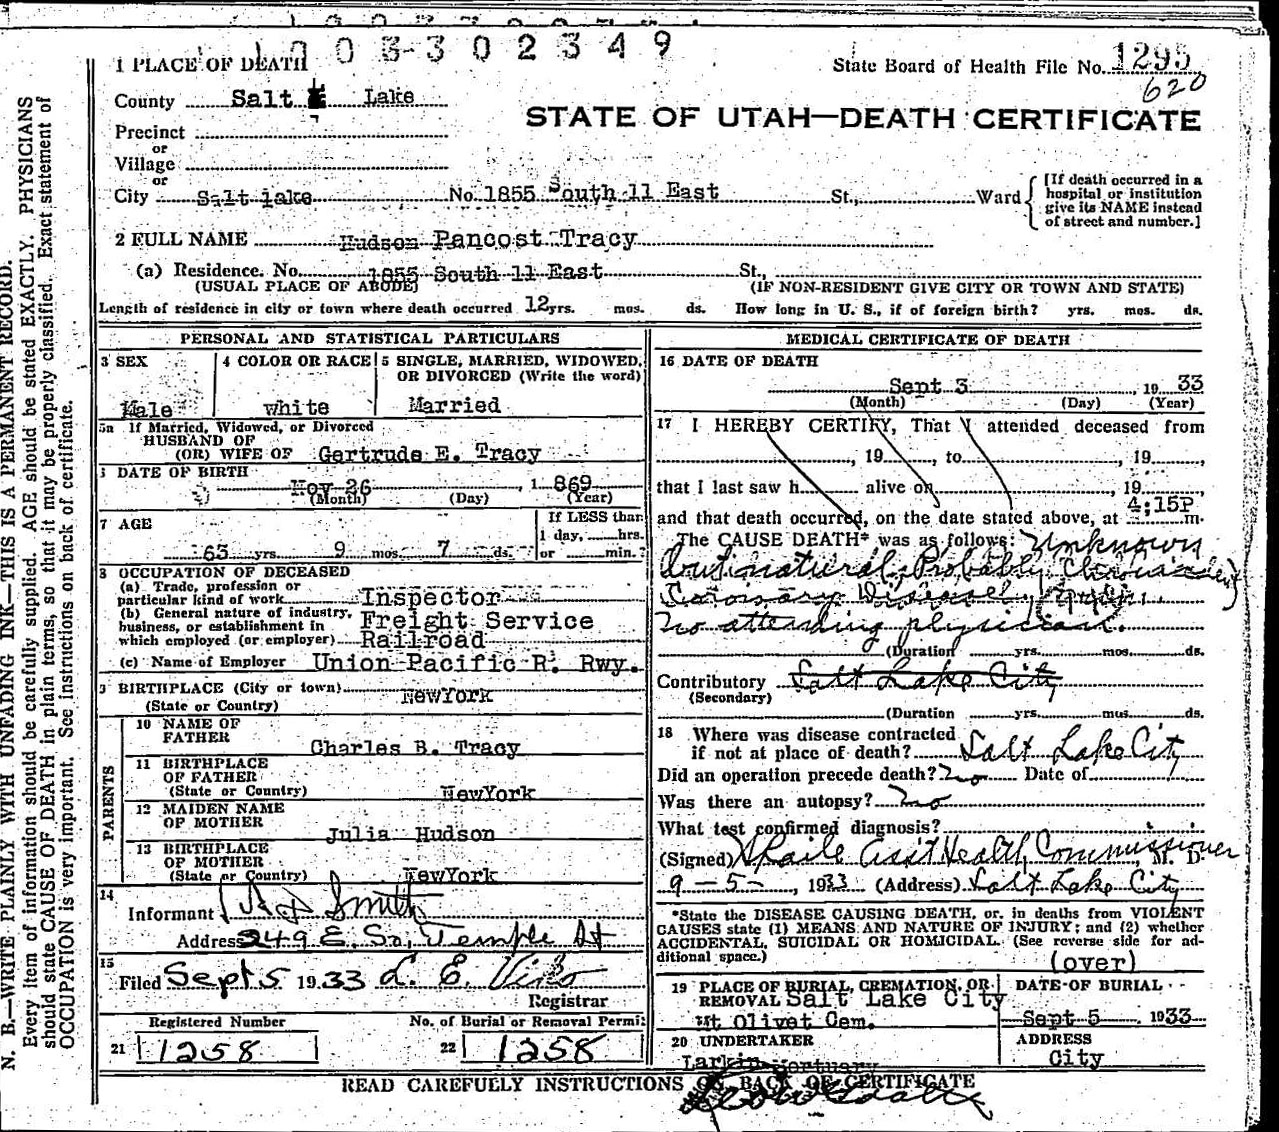 1003-302349
1 PLACE OF DEATH
State Board of Health File No. 1295
620
County Salt Lake
STATE OF UTAH—DEATH CERTIFICATE
Precinct
or
Village
or
City Salt lake No. 1855 South 11 East St., Ward
[If death occurred in a hospital or institution give its NAME instead of street and number.]
2 FULL NAME Hudson Pancost Tracy
(a) Residence. No. 1855 South 11 East St.,
(USUAL PLACE OF ABODE) (IF NON-RESIDENT GIVE CITY OR TOWN AND STATE)
Length of residence in city or town where death occurred 12 yrs. mos. ds. How long in U. S., if of foreign birth? yrs. mos. ds.
PERSONAL AND STATISTICAL PARTICULARS
3 SEX
Male
4 COLOR OR RACE
white
5 SINGLE, MARRIED, WIDOWED, OR DIVORCED (Write the word)
Married
5a If Married, Widowed, or Divorced
HUSBAND OF
(OR) WIFE OF Gertrude E. Tracy
DATE OF BIRTH
Nov 26 , 1869
(Month) (Day) (Year)
7 AGE
63 yrs. 9 mos. 7 ds.
If LESS than
1 day, hrs.
or min.?
8 OCCUPATION OF DECEASED
(a) Trade, profession or
particular kind of work Inspector
(b) General nature of industry,
business, or establishment in Freight Service
which employed (or employer) Railroad
(c) Name of Employer Union Pacific R. Rwy.
9 BIRTHPLACE (City or town) NewYork
(State or Country)
PARENTS
10 NAME OF
FATHER Charles B. Tracy
11 BIRTHPLACE
OF FATHER
(State or Country) NewYork
12 MAIDEN NAME
OF MOTHER Julia Hudson
13 BIRTHPLACE
OF MOTHER
(State or Country) NewYork
14
Informant Smith
Address 249 E. So. Temple St
15
Filed Sept 5 1933 L. E.
Registrar
Registered Number
21 1258
No. of Burial or Removal Permit
22 1258
MEDICAL CERTIFICATE OF DEATH
16 DATE OF DEATH
Sept 3 , 1933
(Month) (Day) (Year)
17 I HEREBY CERTIFY, That I attended deceased from
, 19 , to , 19 ,
that I last saw h alive on , 19
and that death occurred, on the date stated above, at 4;15P m.
The CAUSE DEATH* was as follows: Unknown
but natural. Probably
Coronary Disease,
No attending physician.
(Duration yrs. mos. ds.
Contributory Salt Lake City
(Secondary)
(Duration yrs. mos. ds.
18 Where was disease contracted
if not at place of death? Salt Lake City
Did an operation precede death? No Date of
Was there an autopsy? No
What test confirmed diagnosis?
(Signed) Ass't Health Commissioner, M. D.
9-5-, 1933 (Address) Salt Lake City
*State the DISEASE CAUSING DEATH, or, in deaths from VIOLENT
CAUSES state (1) MEANS AND NATURE OF INJURY; and (2) whether
ACCIDENTAL, SUICIDAL OR HOMICIDAL. (See reverse side for ad-
ditional space.) (over)
19 PLACE OF BURIAL, CREMATION, OR
REMOVAL Salt Lake City
Mt Olivet Cem.
DATE OF BURIAL
Sept 5 1933
20 UNDERTAKER
Larkin Mortuary
ADDRESS
City
READ CAREFULLY INSTRUCTIONS ON BACK OF CERTIFICATE
N. B.—WRITE PLAINLY WITH UNFADING INK—THIS IS A PERMANENT RECORD.
Every item of information should be carefully supplied. AGE should be stated EXACTLY. PHYSICIANS
should state CAUSE OF DEATH in plain terms, so that it may be properly classified. Exact statement of
OCCUPATION is very important. See instructions on back of certificate.